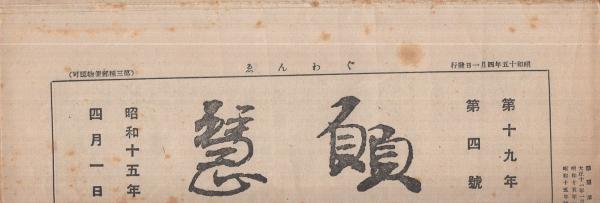 昭和十五年四月一日發行
ぐわんゑ
(第三種郵便物認可)
第十九年
第四號
願慧
昭和十五年
四月一日